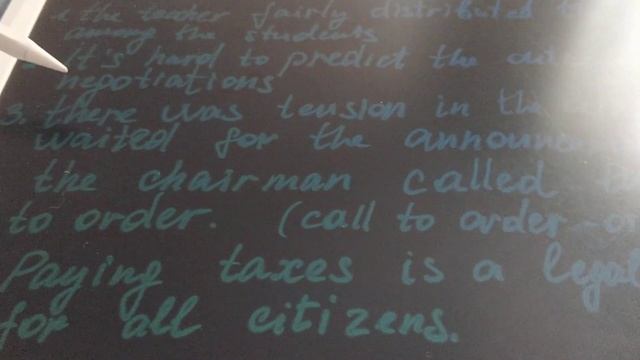 the teacher fairly distributed
among the students
It's hard to predict the
negotiations
3. there was tension in the
waited for the
the chairman called
to order. (call to order
Paying taxes is a
for all citizens.